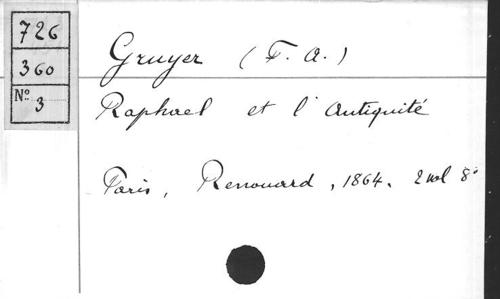 726
360
Nº 3
Gruyer (F. A.)
Raphael et l'Antiquité
Paris, Renouard, 1864. 2 vol 8°